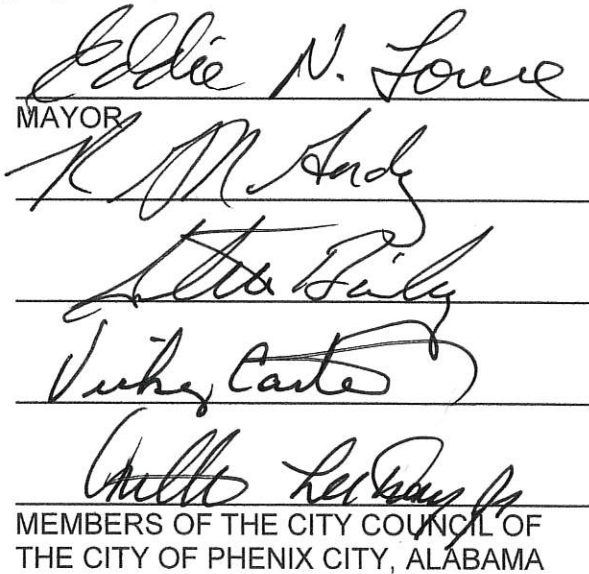 Eddie N. Lowe
MAYOR
R M. Hardy
Steve Bailey
Vickey Carter
Lee Day Jr
MEMBERS OF THE CITY COUNCIL OF
THE CITY OF PHENIX CITY, ALABAMA